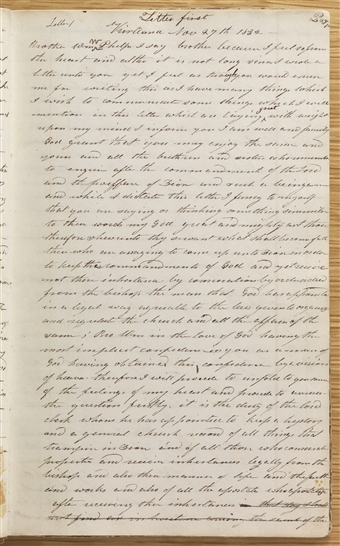 Letter first
Letter 1
Kirtland Nov 27th 1832
Brother Wm W Phelps I say brother because I feel so from
the heart and altho it is not long since I wrote a
letter unto you yet I feel as though you would excuse
me for writing this as I have many things which
I wish to communicate some things which I will
mention in this letter which are laying great with weight
upon my mind I inform you I am well and family
God grant that you may enjoy the same and
yours and all the brethren and sisters who remember
to enquire after the commandments of the Lord
and the welfare of Zion and such a being as me
and while I dictate this letter I fancy to myself
that you are saying or thinking something similar
to these words my God great and mighty art thou
therefore shew unto thy servant what shall become of all
those who are assaying to come up unto Zion in order
to keep the commandments of God and yet receive
not their inheritance by consecration by order or deed
from the bishop the man that God has appointed
in a legal way agreeably to the law given to organize
and regulate the church and all the affairs of the
same; Bro Wm in the love of God having the
most implicit confidence in you as a man of
God having obtained this confidence by a vision
of heaven therefore I will proceed to unfold to you some
of the feelings of my heart and proceed to answer
the question firstly, it is the duty of the lord
clerk whom he has appointed to keep a history
and a general church record of all things that
transpire in Zion and of all those who consecrate
properties and receive inheritances legally from the
bishop and also their manner of life and the faith
and works and also of all the apostates who apostatize
after receiving their inheritances